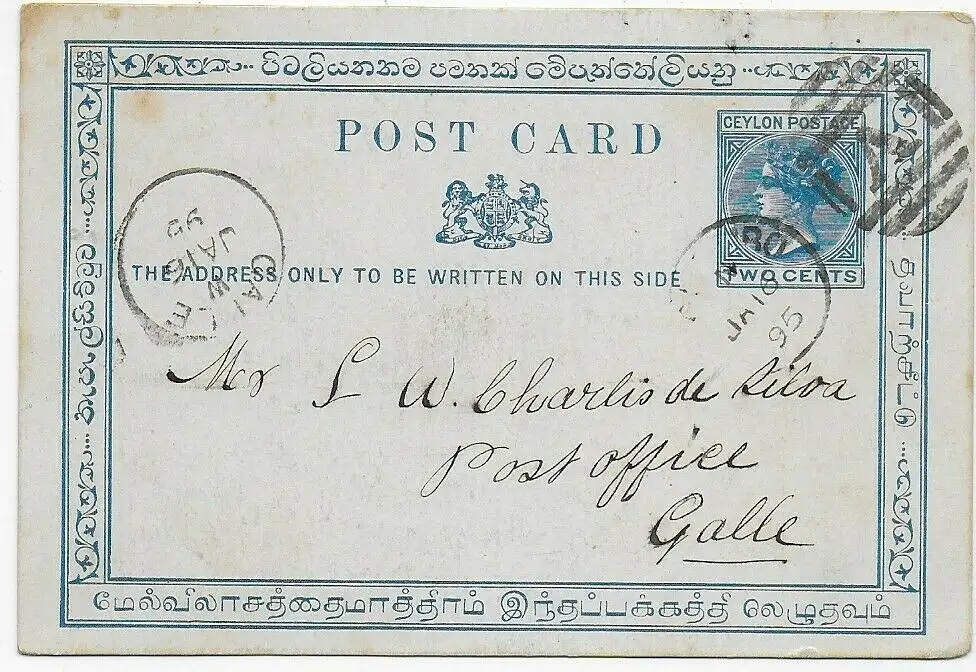 පිටලියනතම පමනක් මේපැත්තේලියනු
POST CARD
CEYLON POSTAGE
TWO CENTS
THE ADDRESS ONLY TO BE WRITTEN ON THIS SIDE
GALLE
JA 16
95
JA 16
95
Mr L W. Charlis de Silva
Post office
Galle
தபாற்சீட்டு
மேல்விலாசத்தைமாத்திரம் இந்தப்பக்கத்தி லெழுதவும்